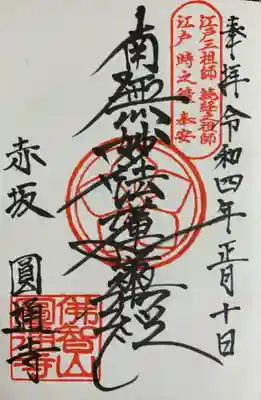 奉拝 令和四年正月十日
江戸三祖師 読経之祖師
江戸 時之鐘 奉安
南無妙法蓮華経
赤坂 圓通寺
佛智山
圓通寺